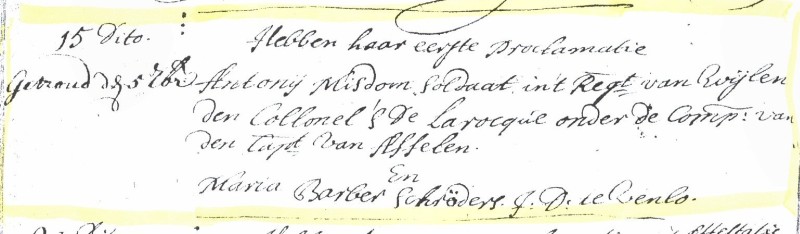 15 Dito. Hebben haar eerste Proclamatie
Getroud d 5 7br Antonij Misdom Soldaat int Regt van Wijlen
den Collonel S De Larocque onder de Comp: van
den Capt Van Asselen.
En
Maria Barber Schröders. J: D: te Venlo.